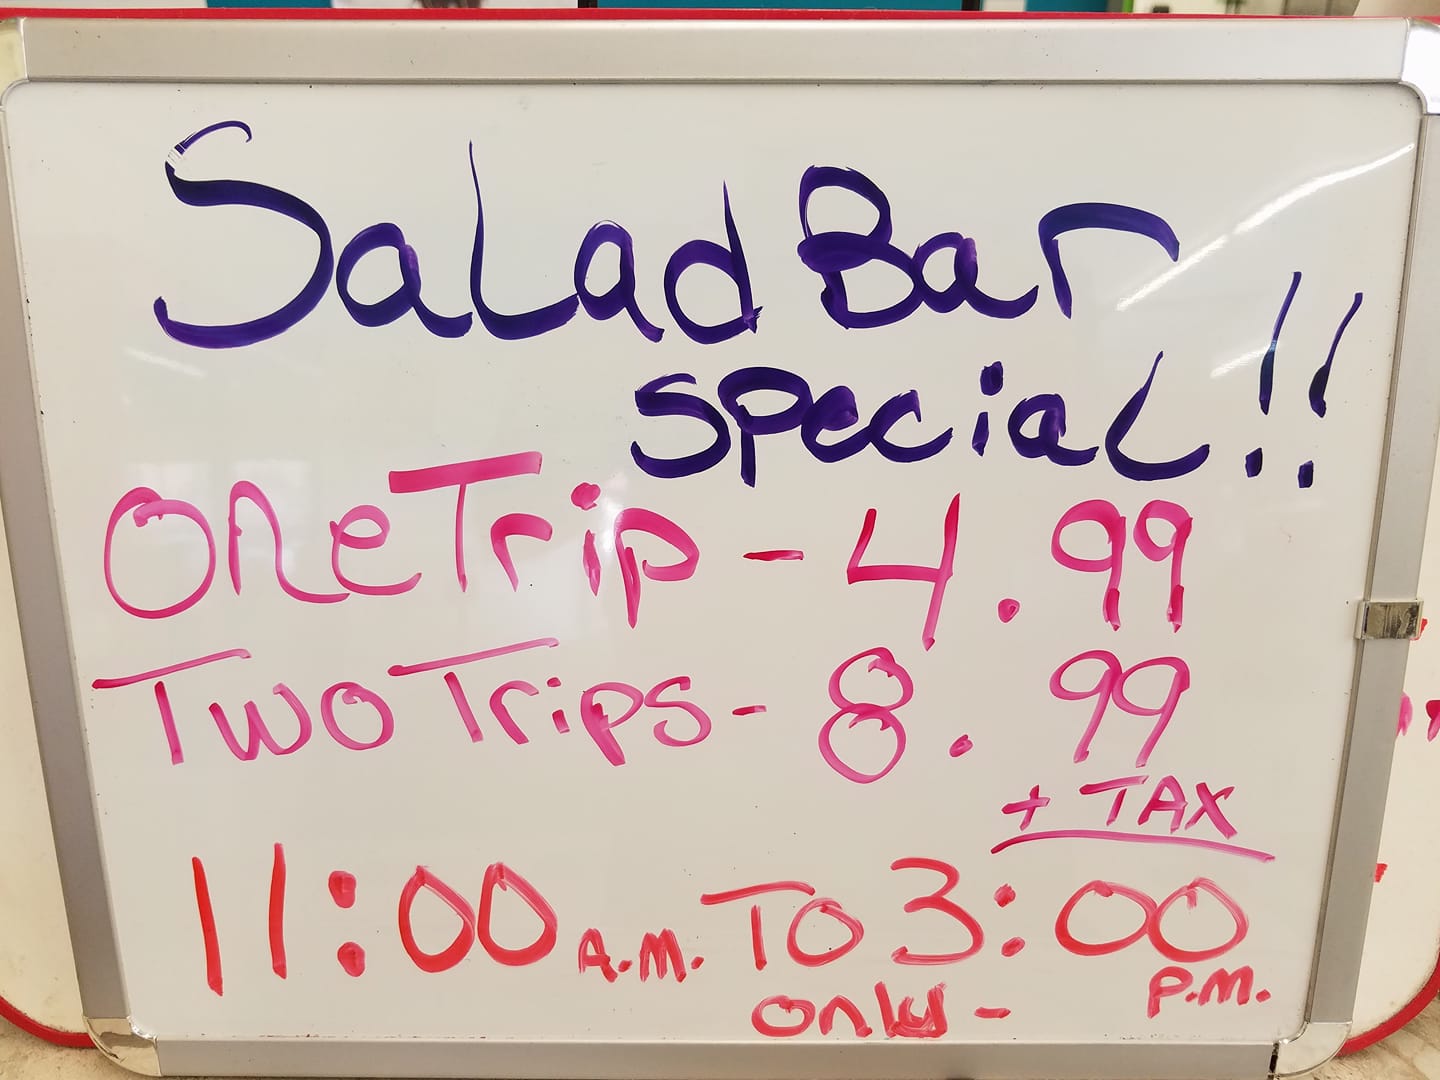 Salad Bar
special!!
One Trip - 4.99
Two Trips - 8.99
+ TAX
11:00 A.M. To 3:00 P.M.
only -